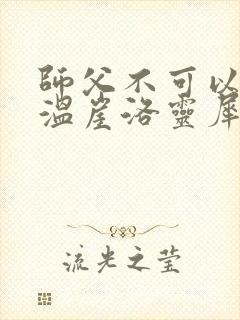 師父不可以
溫崖洛靈犀
流光之莹